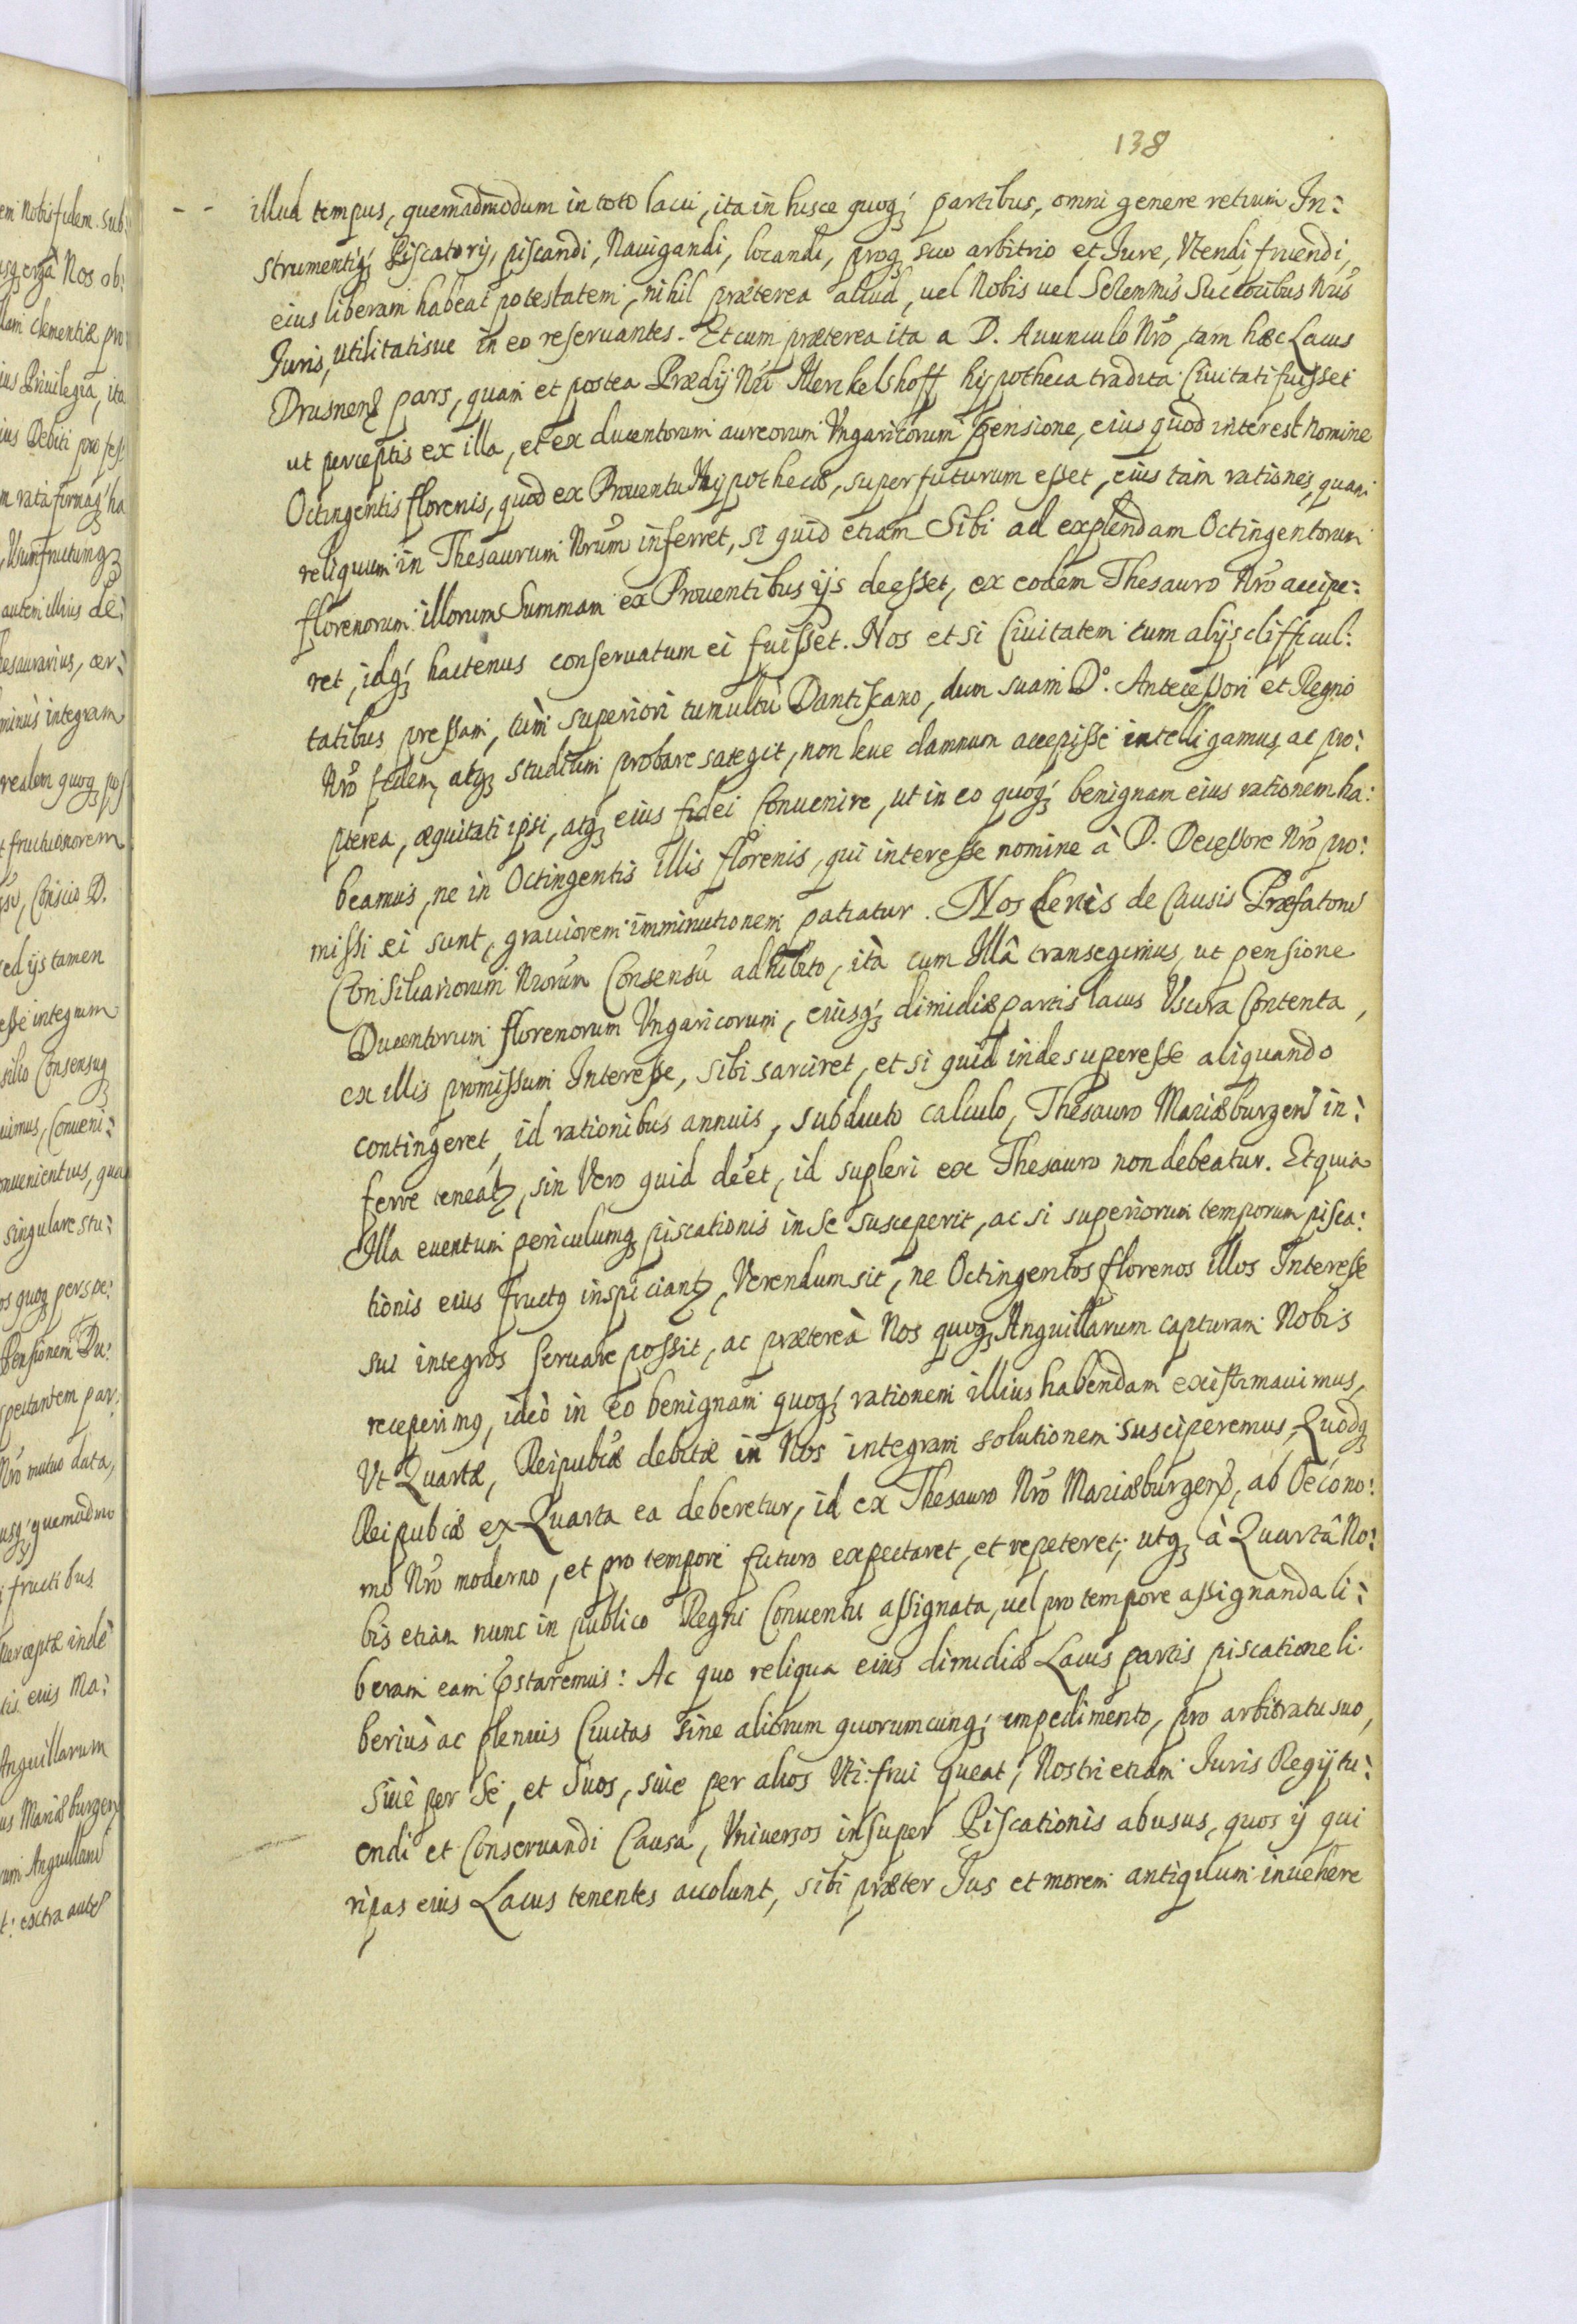 138
illud tempus, quemadmodum in toto lacu, ita in hisce quoq; partibus, omni genere retium In:
strumentiq; Piscatorij, piscandi, Nauigandi, locandi, proq; suo arbitrio et Iure, Vtendi fruendi,
eius liberam habeat potestatem, nihil præterea aliud, uel Nobis uel Selenmis Succoribus Nris
Iuris, utilitatisue in eo reseruantes. Et cum præterea ita a D. Auunculo Nro, tam hæc Lacus
Drusnens pars, quam et postea Prædij Nri Menkelshoff hypotheca tradita Ciuitati fuisset
ut perceptis ex illa, et ex ducentorum aureorum Vngaricorum pensione, eius quod interest nomine
Octingentis florenis, quod ex Prouentu Hypothecæ, superfuturum esset, eius tam rationes, quam
reliquum in Thesaurum Nrum inferret, si quid etiam Sibi ad explendam Octingentorum
florenorum illorum Summam ex Prouentibus ijs deesset, ex eodem Thesauro Nro accipe:
ret, idq; hactenus conseruatum ei fuisset. Nos et si Ciuitatem tum alijs difficul:
tatibus pressam, tum superiori tumultu Dantiscano, dum suam Do. Antecessori et Regno
Nro fidem, atq; studium probare sategit, non leue damnum accepisse intelligamus, ac pro:
pterea, æquitati ipsi, atq; eius fidei Conuenire, ut in eo quoq; benignam eius rationem ha:
beamus, ne in Octingentis illis florenis, qui interesse nomine à D. Decessore Nro pro:
missi ei sunt, grauiorem imminutionem patiatur. Nos de causis Præfatorum
Consiliariorum Nrorum Consensu adhibito, ità cum Illâ transegimus, ut pensione
Ducentorum florenorum Vngaricorum, eiusq; dimidiæ partis lacus Vsura Contenta,
ex illis promissum Interesse, sibi sarciret, et si quid inde superesse aliquando
contingeret, id rationibus annuis, subducto calculo, Thesauro Mariæburgens in:
ferre teneatur, sin Vero quid deet, id supleri ex Thesauro non debeatur. Et quia
Illa euentum periculumq; piscationis in Se susceperit, ac si superiorum temporum pisca:
tionis eius fructus inspiciantur, Verendum sit, ne Octingentos florenos illos Interesse
sui integros seruare possit, ac præterea Nos quoq; Anguillarum capturam Nobis
receperimus, ideò in eo benignam quoq; rationem illius habendam existimauimus,
Vt Quartæ, Reipublicæ debitæ in Nos integram solutionem susciperemus, Quodq;
Reipubcæ ex Quarta ea deberetur, id ex Thesauro Nro Mariæburgens, ab Oecono:
mo Nro moderno, et pro tempore futuro expectaret, et repeteret; utq; à Quartâ No:
bis etiam nunc in publico Regni Conuentu assignata, uel pro tempore assignanda li:
beram eam præstaremus: Ac quo reliqua eius dimidiæ Lacus partis piscatione li:
berius ac plenius Ciuitas sine aliorum quorumcunq; impedimento, pro arbitratu suo,
Siue per Se, et Suos, siue per alios Vti frui queat, Nostri etiam Iuris Regij tu:
endi et Conseruandi Causa, Vniuersos insuper Piscationis abusus, quos ij qui
ripas eius Lacus tenentes accolunt, sibi præter Ius et morem antiquum inuehere